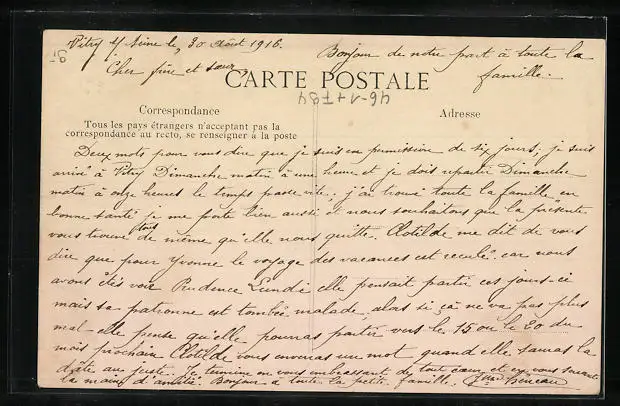 Vitry s/ Seine le, 30 Août 1916.
Bonjour de notre part à toute la famille.
Cher frère et sœur,
CARTE POSTALE
Correspondance
Adresse
Tous les pays étrangers n'acceptant pas la
correspondance au recto, se renseigner à la poste
Deux mots pour vous dire que je suis en permission de six jours; je suis
arrivé à Vitry Dimanche matin à une heure et je dois repartir Dimanche
matin à onze heures le temps passe vite; j'ai trouvé toute la famille en
bonne santé je me porte bien aussi et nous souhaitons que la présente
vous trouve tous de même qu'elle nous quitte. Clotilde me dit de vous
dire que pour Yvonne le voyage des vacances est reculé car nous
avons étés voir Prudence Lundi elle pensait partir ces jours-ci
mais sa patronne est tombée malade, alors si ça ne va pas plus
mal elle pense qu'elle pourras partir vers le 15 ou le 20 du
mois prochain Clotilde vous enverras un mot quand elle sauras la
date au juste. Je termine en vous embrassant de tout cœur et en vous serrant
la main d'amitié. Bonjour à toute la petite famille.